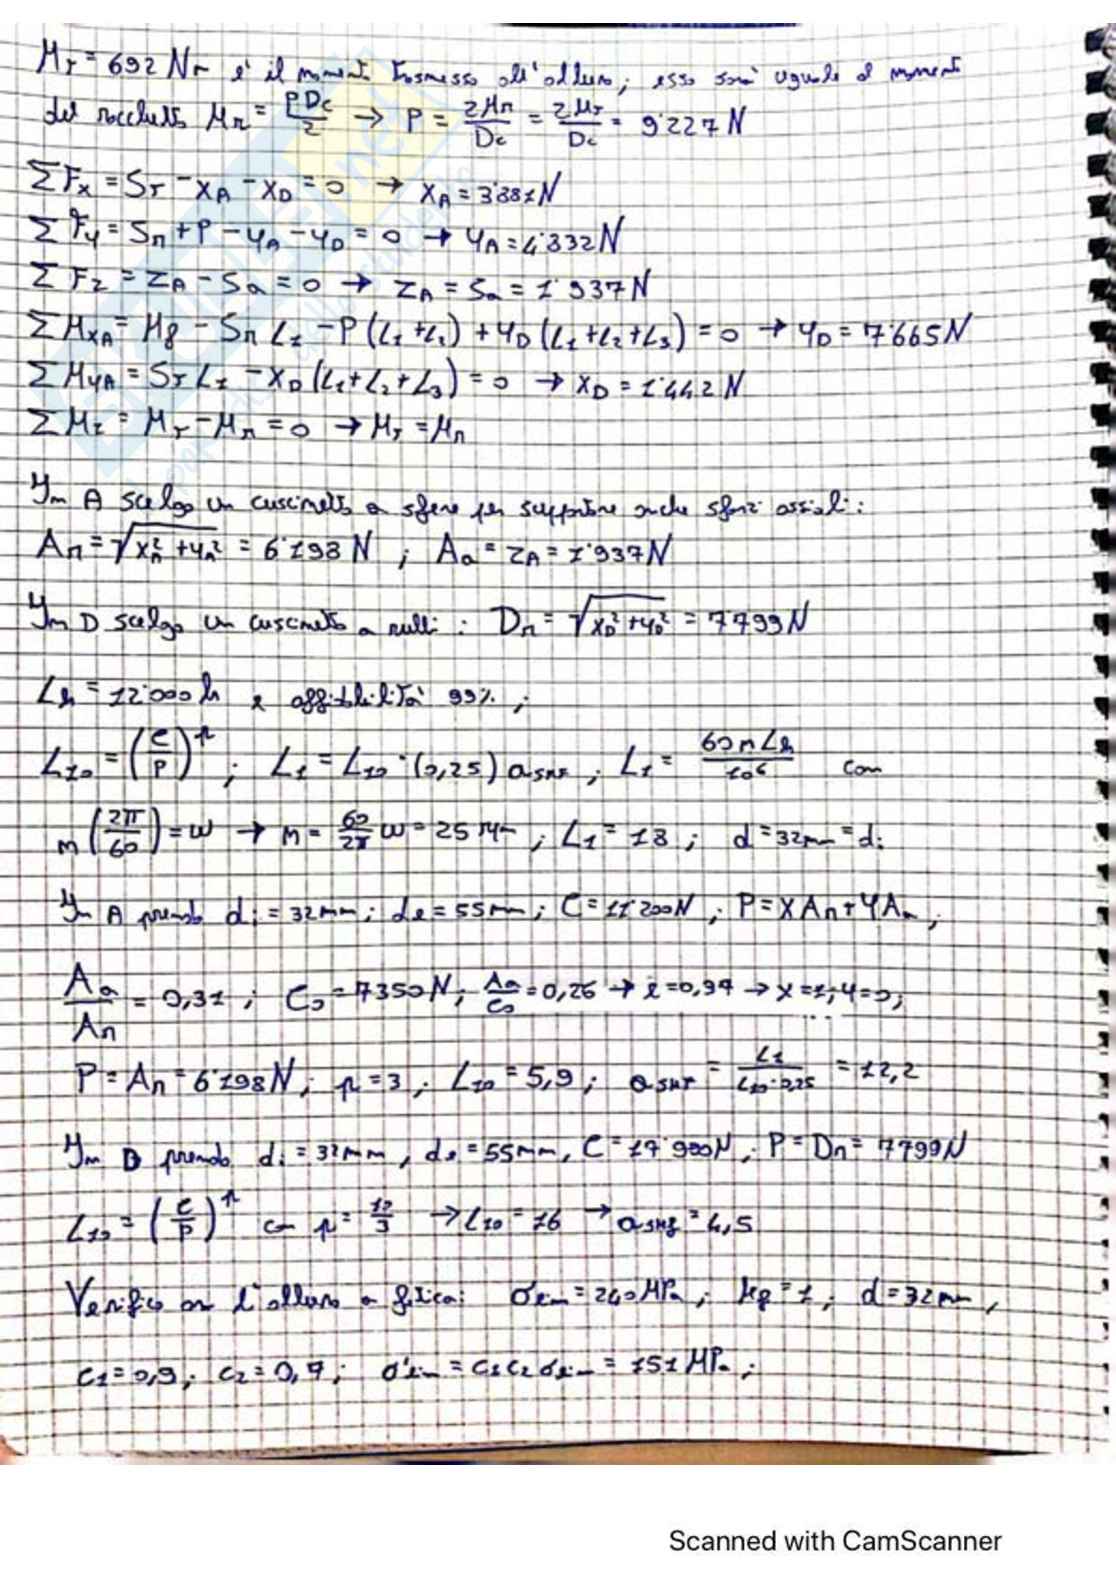 Mr = 692 Nm è il momento trasmesso all'albero; esso sarà uguale al momento
del rocchetto Mn = PDc/2 → P = 2Mn/Dc = 2Mr/Dc = 9'227 N
ΣFx = Sr - XA - XD = 0 → XA = 3'881 N
ΣFy = Sn + P - YA - YD = 0 → YA = 4'832 N
ΣFz = ZA - Sa = 0 → ZA = Sa = 1'937 N
ΣMxA = Mf - Sn L1 - P(L1+L2) + YD(L1+L2+L3) = 0 → YD = 7'665 N
ΣMyA = Sr L1 - XD(L1+L2+L3) = 0 → XD = 1'442 N
ΣMz = Mr - Mn = 0 → Mr = Mn
In A scelgo un cuscinetto a sfere per supportare anche sforzi assiali:
An = √(XA² + YA²) = 6'198 N ; Aa = ZA = 1'937 N
In D scelgo un cuscinetto a rulli: Dn = √(XD² + YD²) = 7'799 N
Lh = 12'000 h e affidabilità 99% ;
L10 = (C/P)^p ; L1 = L10 · (0,25) aSKF ; L1 = 60 n Lh / 10⁶ con
n(2π/60) = ω → n = 60/2π ω = 25 ; L1 = 18 ; d = 32mm = di
In A prendo di = 32mm ; de = 55mm ; C = 11'200N ; P = XAn + YAa ;
Aa/An = 0,31 ; C0 = 7350N ; Aa/C0 = 0,26 → → X = 1; Y = 0;
P = An = 6'198N ; p = 3 ; L10 = 5,9 ; aSKF = L1/(L10·0,25) = 12,2
In D prendo di = 32mm , de = 55mm , C = 17'900N ; P = Dn = 7799N
L10 = (C/P)^p con p = 10/3 → L10 = 16 → aSKF = 4,5
Verifico ora l'albero a fatica: σlim = 240 MPa ; kf = 1 ; d = 32mm ,
c1 = 0,9 ; c2 = 0,7 ; σ'lim = c1 c2 σlim = 151 MPa ;
Scanned with CamScanner